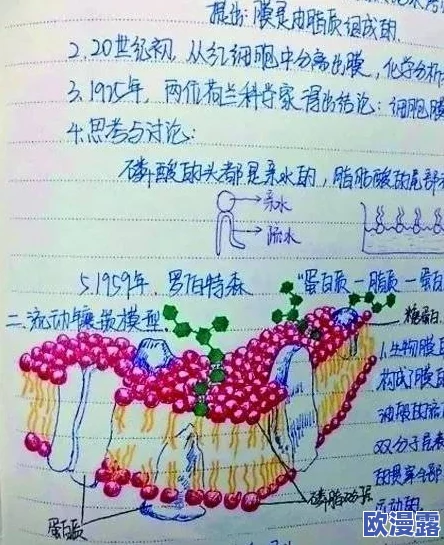 提出:膜是由脂质组成的
2.20世纪初,从红细胞中分离出膜,化学分析
3.1925年,两位荷兰科学家得出结论:细胞膜
4.思考与讨论:
磷酸的头部是亲水的,脂肪酸的尾部
亲水
疏水
5.1959年,罗伯特森 "蛋白质—脂质—蛋白
二.流动镶嵌模型
糖蛋白
1.生物膜的
构成了膜的
油般的流
双分子层表
的贯穿全部
运动的
蛋白质
磷脂双分子层
欧漫露